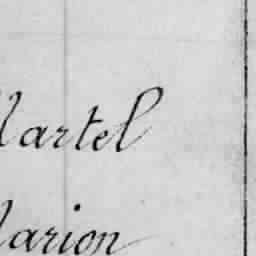 Martel
Marion